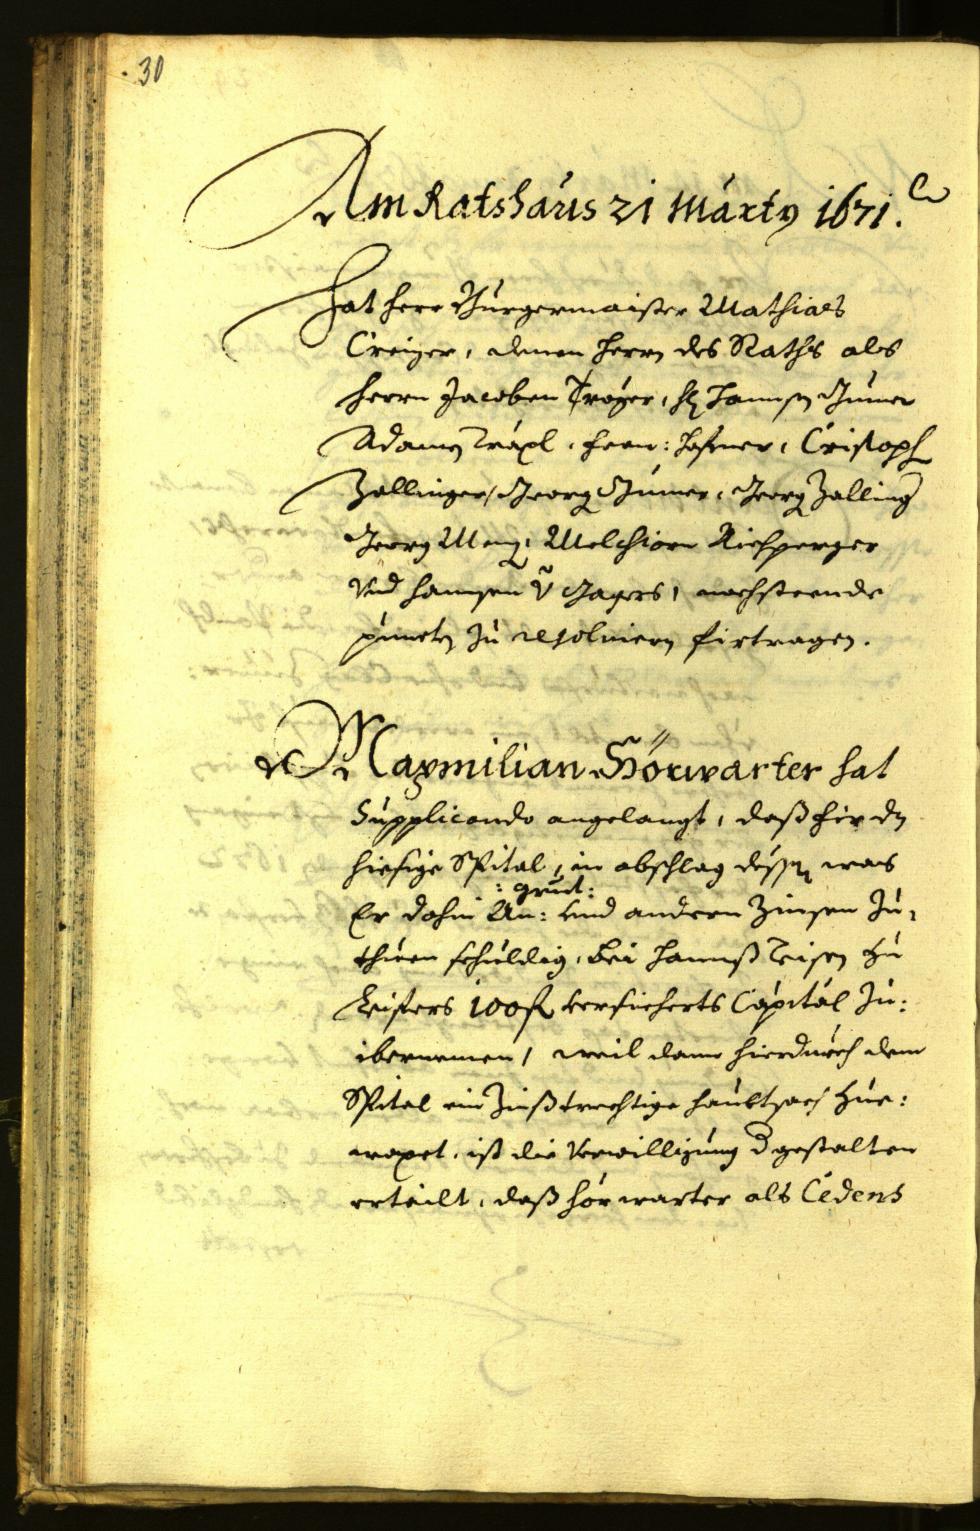 30
Am Ratshaus 21 Marty 1671.
Hat herr Burgermaister Mathias
Creizer, denen herrn des Raths als
herrn Jacoben Troyer, H: Hannsen
Adamen Träxl, Hafner, Cristoph
Zallinger, Georg, Georg Zalling
Georg, Melchiorn Kirchperger
Und hannsen Jagers, nachsteende
puncten zu resolviern firtragen.
Maxmilian Hörwarter hat
Supplicando angelangt, daß hier dz
hiesige Spital, in abschlag dessen was
: grunt:
Er dahin An: und andern Zinsen zu,
thuen schuldig, bei Hannß Zu
Leifers 100 f versicherts Capital zu:
ibernemen, weil dann hierdurch dem
Spital ein Zinßtrechtige haubtsach zue:
waxet, ist die Verwilligung dergestalten
erteilt, daß hörwarter als Cedens